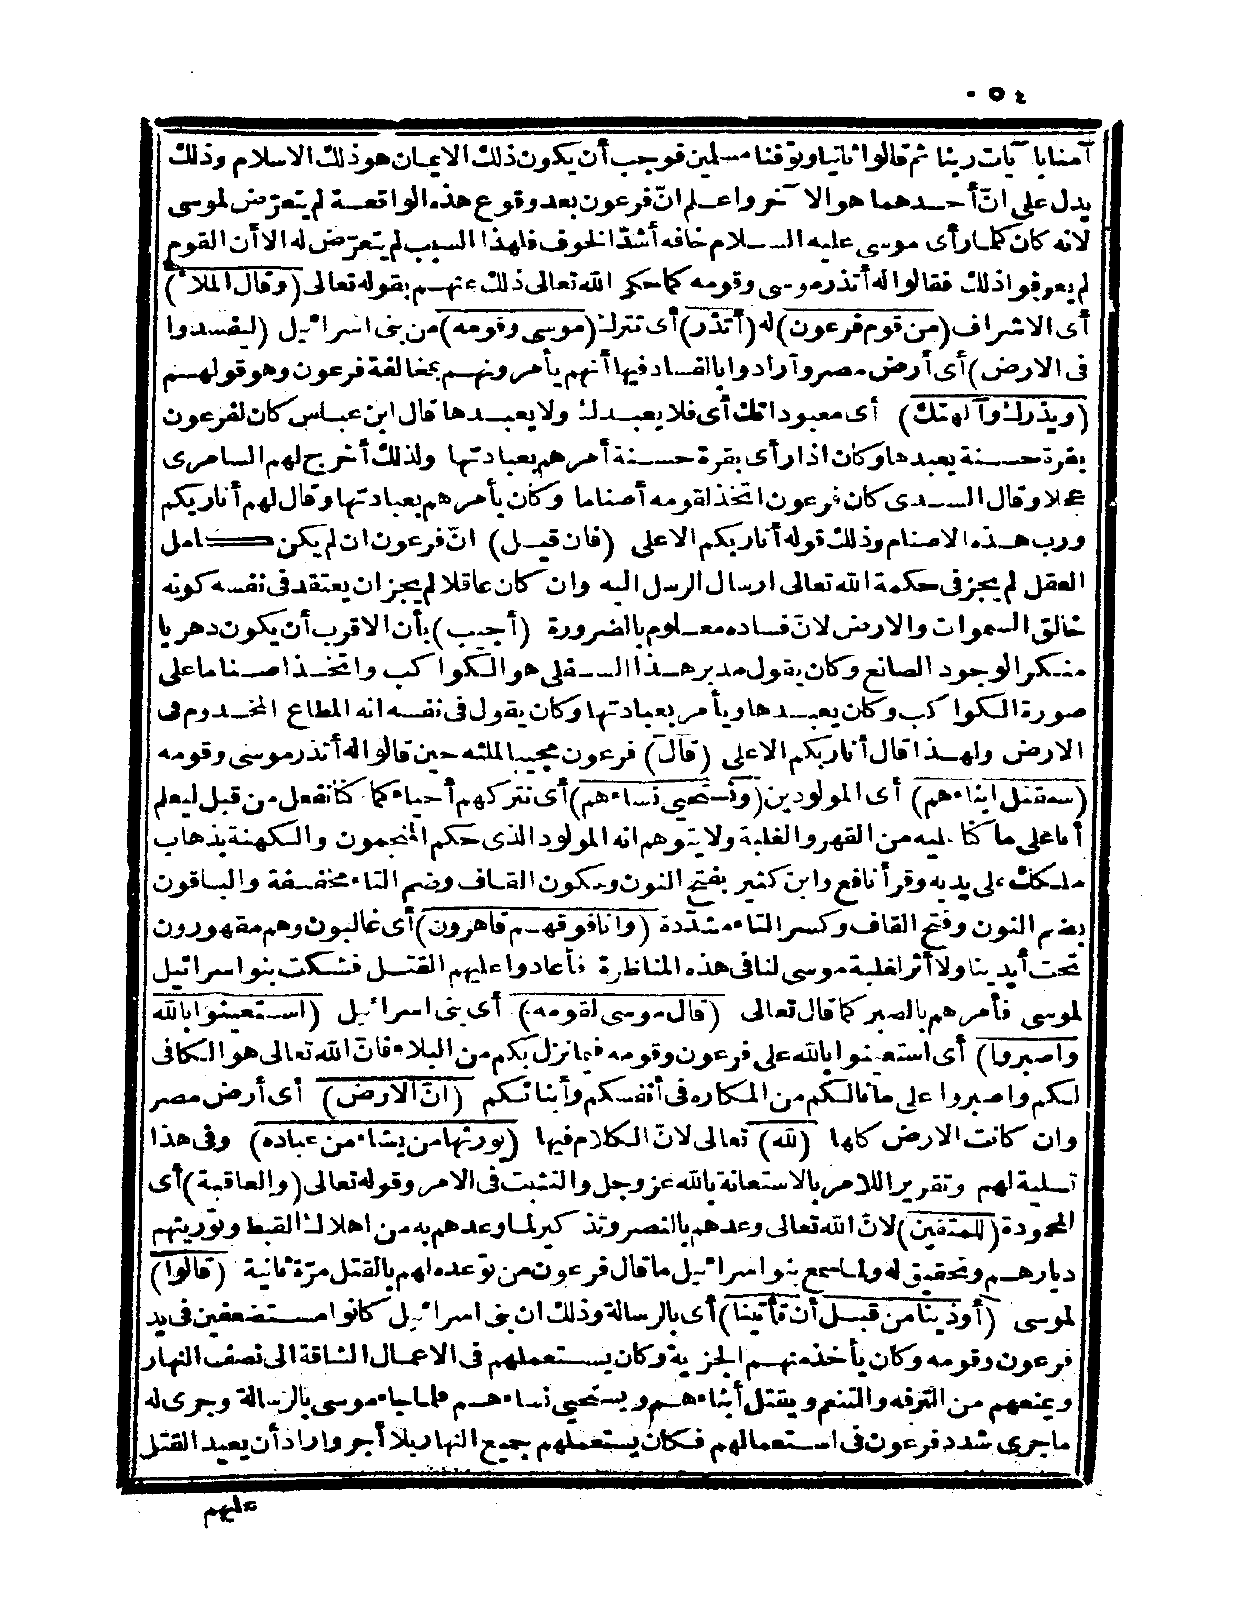 ٥٠٤
آمنا بآيات ربنا ثم قالوا ثانيا وتوفنا مسلمين فوجب أن يكون ذلك الايمان هو ذلك الاسلام وذلك
يدل على انّ أحدهما هو الآخر واعلم انّ فرعون بعد وقوع هذه الواقعة لم يتعرّض لموسى
لانه كان كلما رأى موسى عليه السلام خافه أشدّ الخوف فلهذا السبب لم يتعرّض له الا أن القوم
لم يعرفوا ذلك فقالوا له أتذر موسى وقومه كما حكى الله تعالى ذلك عنهم بقوله تعالى (وقال الملأ)
أى الاشراف (من قوم فرعون) له (أتذر) أى تترك (موسى وقومه) من بنى اسرائيل (ليفسدوا
فى الارض) أى أرض مصر وأرادوا بالفساد فيها أنهم يأمرونهم بمخالفة فرعون وهو قولهم
(ويذرك وآلهتك) أى معبوداتك أى فلا يعبدك ولا يعبدها قال ابن عباس كان لفرعون
بقرة حسنة يعبدها وكان اذا رأى بقرة حسنة أمرهم بعبادتها ولذلك أخرج لهم السامرى
عجلا وقال السدى كان فرعون اتخذ لقومه أصناما وكان يأمرهم بعبادتها وقال لهم أنا ربكم
ورب هذه الاصنام وذلك قوله أنا ربكم الاعلى (فان قيل) انّ فرعون ان لم يكن كامل
العقل لم يجز فى حكمة الله تعالى ارسال الرسل اليه وان كان عاقلا لم يجز ان يعتقد فى نفسه كونه
خالق السموات والارض لانّ فساده معلوم بالضرورة (أجيب) بأن الاقرب أن يكون دهريا
منكر الوجود الصانع وكان يقول مدبر هذا السفلى هو الكواكب واتخذ اصناما على
صورة الكواكب وكان يعبدها ويأمر بعبادتها وكان يقول فى نفسه انه المطاع المخدوم فى
الارض ولهذا قال أنا ربكم الاعلى (قال) فرعون مجيبا لملئه حين قالوا له أتذر موسى وقومه
(سنقتل ابناءهم) أى المولودين (ونستحيى نساءهم) أى نتركهم أحياء كما كنا نفعل من قبل ليعلم
أنا على ما كنا عليه من القهر والغلبة ولا يتوهم انه المولود الذى حكم المنجمون والكهنة بذهاب
ملكك على يديه وقرأ نافع وابن كثير بفتح النون وسكون القاف وضم التاء مخففة والباقون
بضم النون وفتح القاف وكسر التاء مشدّدة (وانا فوقهم قاهرون) أى غالبون وهم مقهورون
تحت أيدينا ولا أثر لغلبة موسى لنا فى هذه المناظرة فأعادوا عليهم القتل فشكت بنو اسرائيل
لموسى فأمرهم بالصبر كما قال تعالى (قال موسى لقومه) أى بنى اسرائيل (استعينوا بالله
واصبروا) أى استعينوا بالله على فرعون وقومه فيما نزل بكم من البلاء فانّ الله تعالى هو الكافى
لكم واصبروا على ما نالكم من المكاره فى أنفسكم وأبنائكم (انّ الارض) أى أرض مصر
وان كانت الارض كلها (لله) تعالى لانّ الكلام فيها (يورثها من يشاء من عباده) وفى هذا
تسلية لهم وتقرير اللامر بالاستعانة بالله عز وجل والتثبت فى الامر وقوله تعالى (والعاقبة) أى
المحمودة (للمتقين) لانّ الله تعالى وعدهم بالنصر وتذكير لما وعدهم به من اهلاك القبط وتوريثهم
ديارهم وتحقيق له ولما سمع بنو اسرائيل ما قال فرعون من توعده لهم بالقتل مرّة ثانية (قالوا)
لموسى (أوذينا من قبل أن تأتينا) أى بالرسالة وذلك ان بنى اسرائيل كانوا مستضعفين فى يد
فرعون وقومه وكان يأخذ منهم الجزية وكان يستعملهم فى الاعمال الشاقة الى نصف النهار
ويمنعهم من الترفه والتنعم ويقتل أبناءهم ويستحيى نساءهم فلما جاء موسى بالرسالة وجرى له
ما جرى شدد فرعون فى استعمالهم فكان يستعملهم جميع النهار بلا أجر وأراد أن يعيد القتل
عليهم